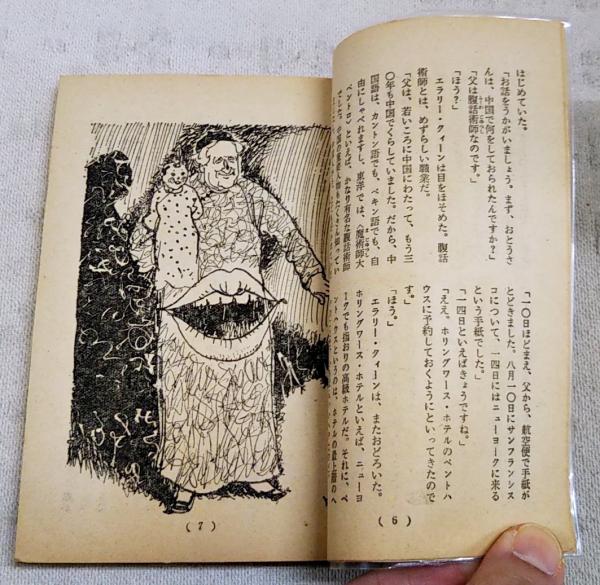 はじめていた。
「お話をうかがいましょう。まず、おとうさ
んは、中国で何をしておられたんですか?」
「父は腹話術師なのです。」
「ほう?」
エラリー・クィーンは目をほそめた。腹話
術師とは、めずらしい職業だ。
「父は、若いころに中国にわたって、もう三
〇年も中国でくらしていました。だから、中
国語は、カントン語でも、ペキン語でも、自
由にしゃべれますし、東洋では、《魔術師大
ペントロ》といえば、かなり有名な腹話術師
でした。中国の
「一〇日ほどまえ、父から、航空便で手紙が
とどきました。八月一〇日にサンフランシス
コについて、一四日にはニューヨークに来る
という手紙でした。」
「一四日といえばきょうですね。」
「ええ。ホリングワース・ホテルのペントハ
ウスに予約しておくようにといってきたので
す。」
「ほう。」
エラリー・クィーンは、またおどろいた。
ホリングワース・ホテルといえば、ニューヨ
ークでも指おりの高級ホテルだ。それに、ペ
ントハウスというのは、ホテルの最上階のへ
( 6 )
( 7 )